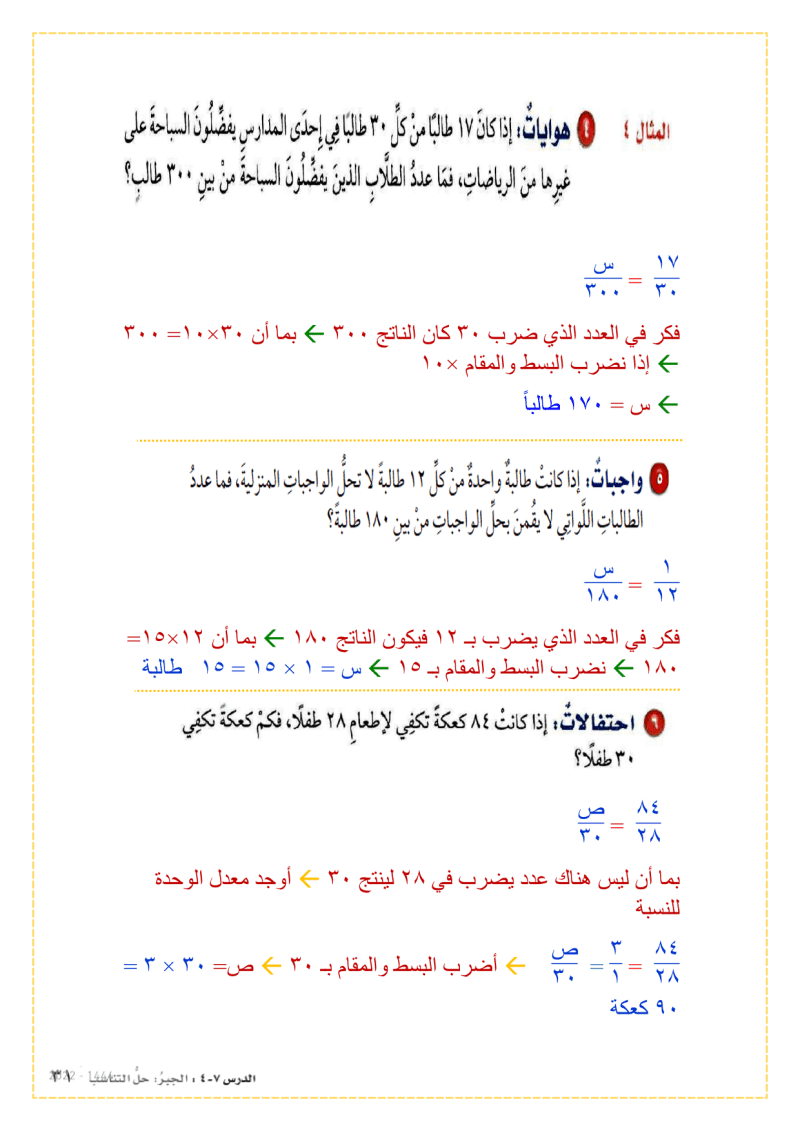 المثال ٤
٤ هواياتٌ: إذا كانَ ١٧ طالبًا منْ كلِّ ٣٠ طالبًا فِي إحدَى المدارسِ يفضِّلُونَ السباحةَ على
غيرِها منَ الرياضاتِ، فمَا عددُ الطلَّابِ الذينَ يفضِّلُونَ السباحةَ منْ بينِ ٣٠٠ طالبٍ؟
١٧/٣٠ = س/٣٠٠
فكر في العدد الذي ضرب ٣٠ كان الناتج ٣٠٠ ← بما أن ٣٠×١٠= ٣٠٠
← إذا نضرب البسط والمقام ×١٠
← س = ١٧٠ طالباً
٥ واجباتٌ: إذا كانتْ طالبةٌ واحدةٌ منْ كلِّ ١٢ طالبةً لا تحلُّ الواجباتِ المنزليةَ، فما عددُ
الطالباتِ اللَّواتِي لا يقُمنَ بحلِّ الواجباتِ منْ بينِ ١٨٠ طالبةً؟
١/١٢ = س/١٨٠
فكر في العدد الذي يضرب بـ ١٢ فيكون الناتج ١٨٠ ← بما أن ١٢×١٥=
١٨٠ ← نضرب البسط والمقام بـ ١٥ ← س = ١ × ١٥ = ١٥ طالبة
٦ احتفالاتٌ: إذا كانتْ ٨٤ كعكةً تكفِي لإطعامِ ٢٨ طفلًا، فكمْ كعكةً تكفِي
٣٠ طفلًا؟
٨٤/٢٨ = ص/٣٠
بما أن ليس هناك عدد يضرب في ٢٨ لينتج ٣٠ ← أوجد معدل الوحدة
للنسبة
٨٤/٢٨ = ٣/١ = ص/٣٠ ← أضرب البسط والمقام بـ ٣٠ ← ص= ٣٠ × ٣ =
٩٠ كعكة
الدرس ٧-٤ : الجبرُ: حلُّ التناسب